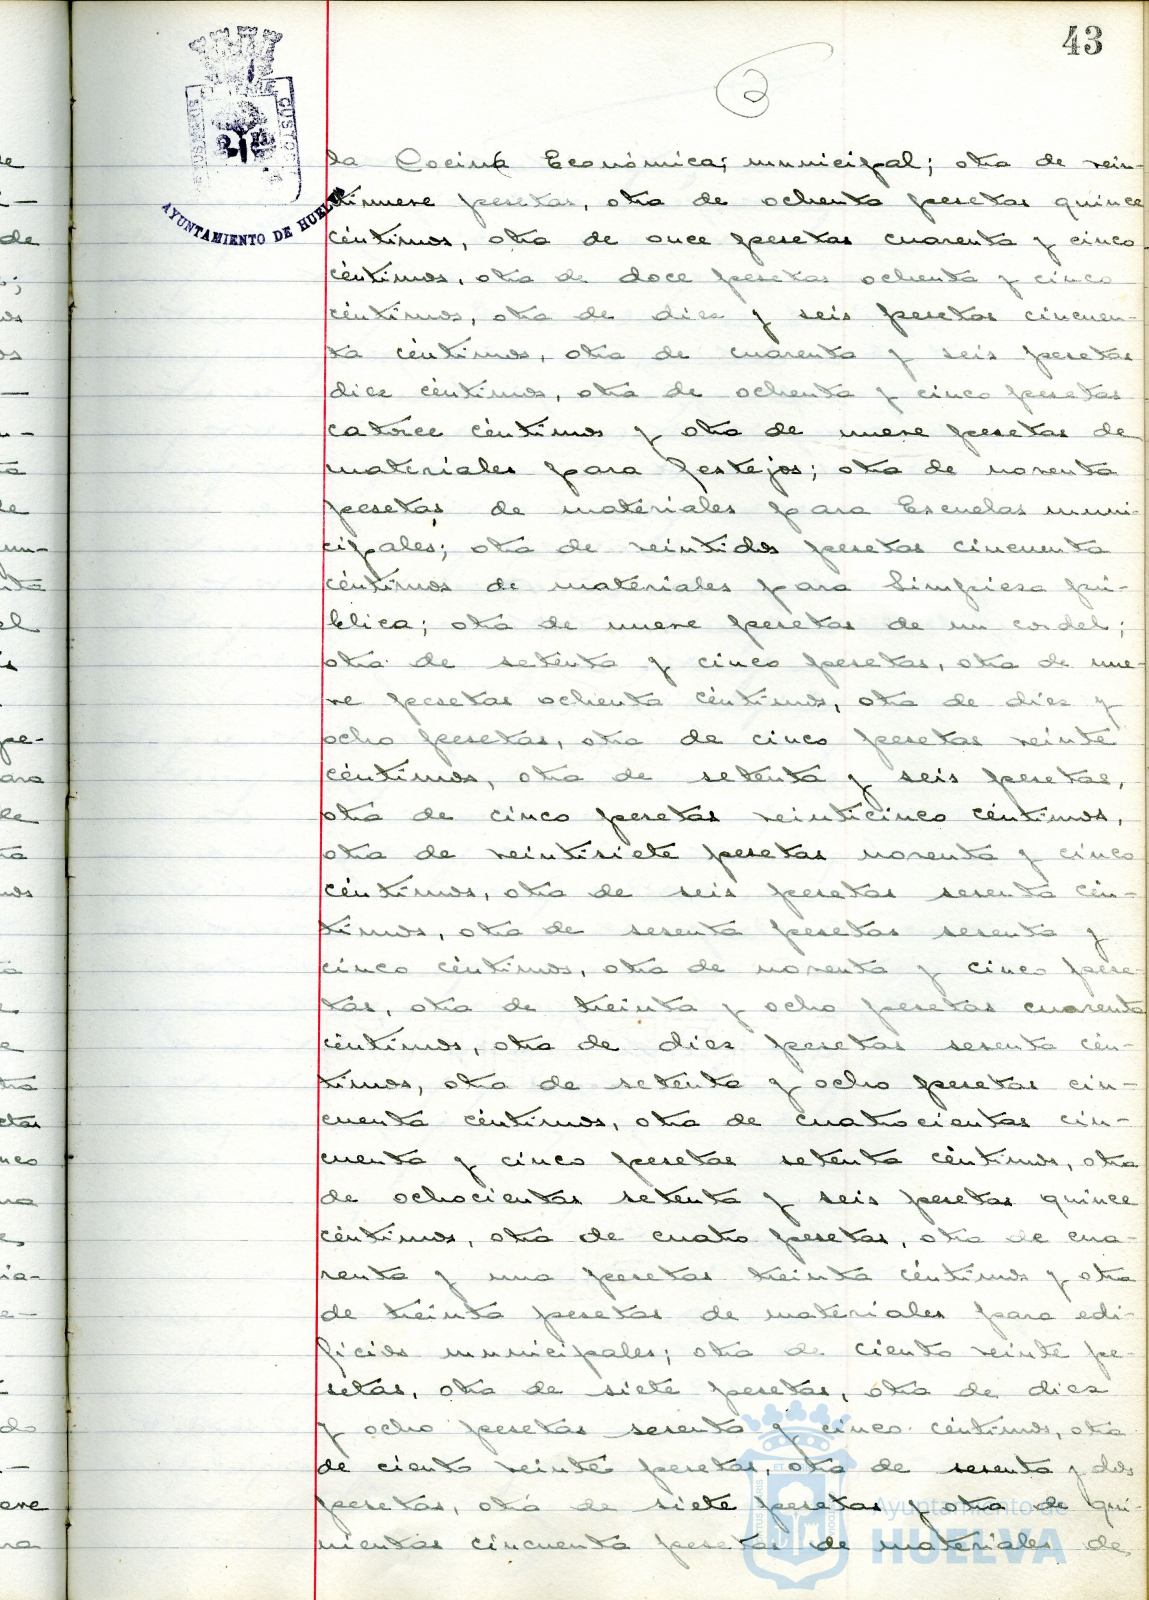 43
AYUNTAMIENTO DE HUELVA
la Cocina Económica municipal; otra de vein-
tinueve pesetas, otra de ochenta pesetas quince
céntimos, otra de once pesetas cuarenta y cinco
céntimos, otra de doce pesetas ochenta y cinco
céntimos, otra de diez y seis pesetas cincuen-
ta céntimos, otra de cuarenta y seis pesetas
diez céntimos, otra de ochenta y cinco pesetas
catorce céntimos y otra de nueve pesetas de
materiales para festejos; otra de noventa
pesetas de materiales para Escuelas muni-
cipales; otra de veintidos pesetas cincuenta
céntimos de materiales para limpieza pú-
blica; otra de nueve pesetas de un cordel;
otra de setenta y cinco pesetas, otra de nue-
ve pesetas ochenta céntimos, otra de diez y
ocho pesetas, otra de cinco pesetas veinte
céntimos, otra de setenta y seis pesetas,
otra de cinco pesetas veinticinco céntimos,
otra de veintisiete pesetas noventa y cinco
céntimos, otra de seis pesetas sesenta cén-
timos, otra de sesenta pesetas sesenta y
cinco céntimos, otra de noventa y cinco pese-
tas, otra de treinta y ocho pesetas cuarenta
céntimos, otra de diez pesetas sesenta cén-
timos, otra de setenta y ocho pesetas cin-
cuenta céntimos, otra de cuatrocientas cin-
cuenta y cinco pesetas setenta céntimos, otra
de ochocientas setenta y seis pesetas quince
céntimos, otra de cuatro pesetas, otra de cua-
renta y una pesetas treinta céntimos y otra
de treinta pesetas de materiales para edi-
ficios municipales; otra de ciento veinte pe-
setas, otra de siete pesetas, otra de diez
y ocho pesetas sesenta y cinco céntimos, otra
de ciento veinte pesetas, otra de sesenta y dos
pesetas, otra de siete pesetas y otra de qui-
nientas cincuenta pesetas de materiales de
Ayuntamiento de
HUELVA